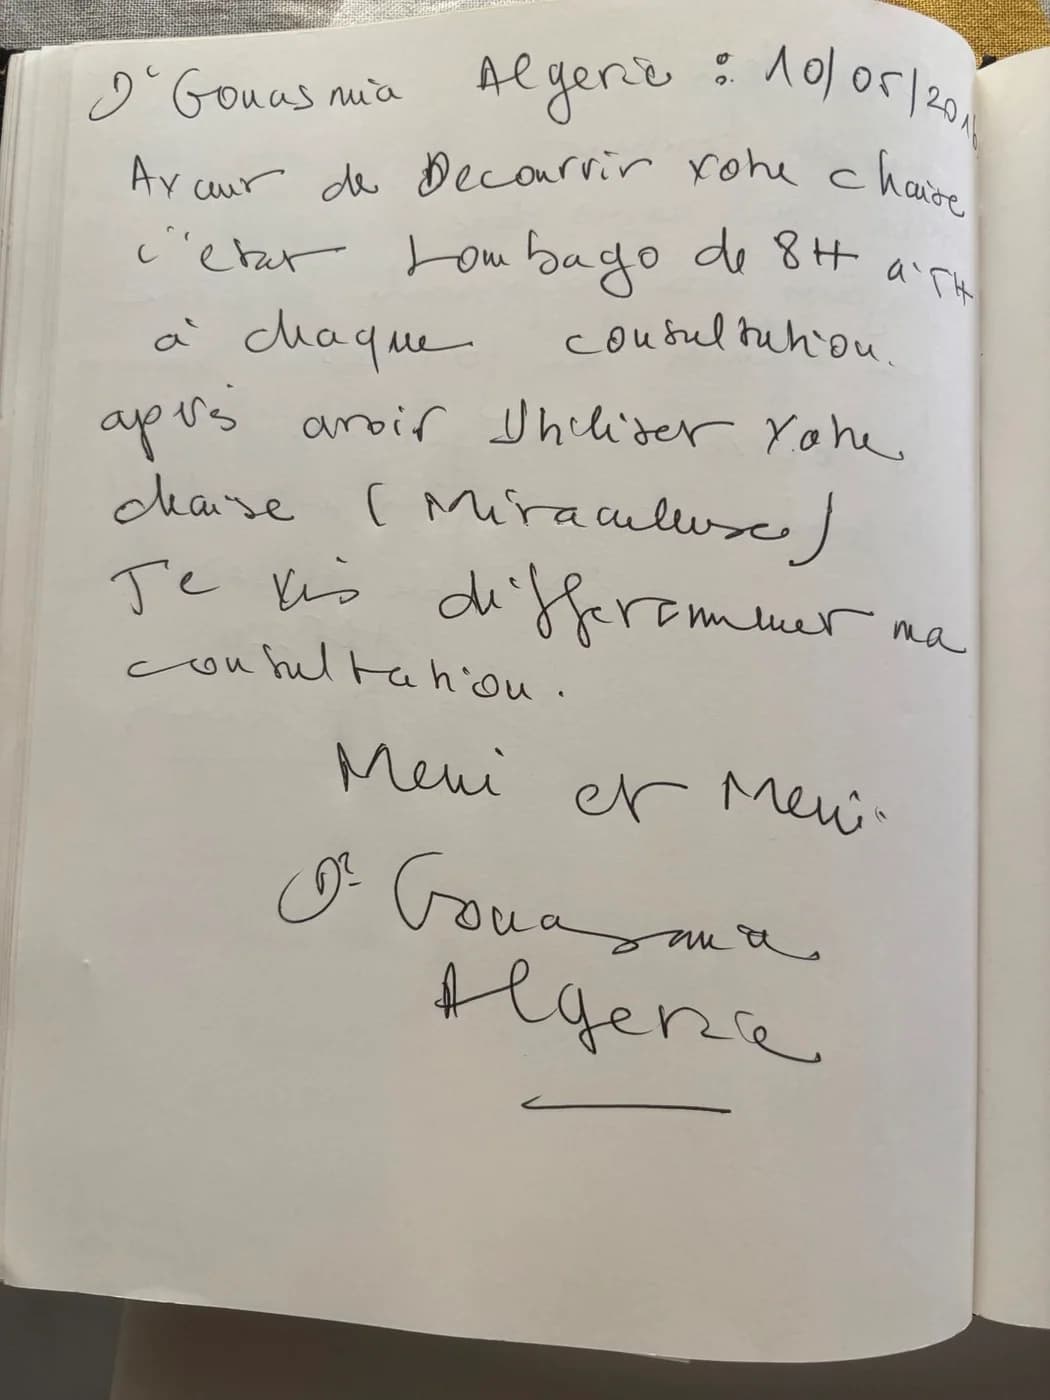 Dr Gouasmia Algerie : 10/05/2016
Avant de Decouvrir votre chaise
c'etait Lombago de 8H a 5H
à chaque consultation.
après avoir Utiliser votre
chaise (Miraculeuse)
Je vis differemment ma
consultation.
Merci et Merci.
Dr Gouasmia
Algerie